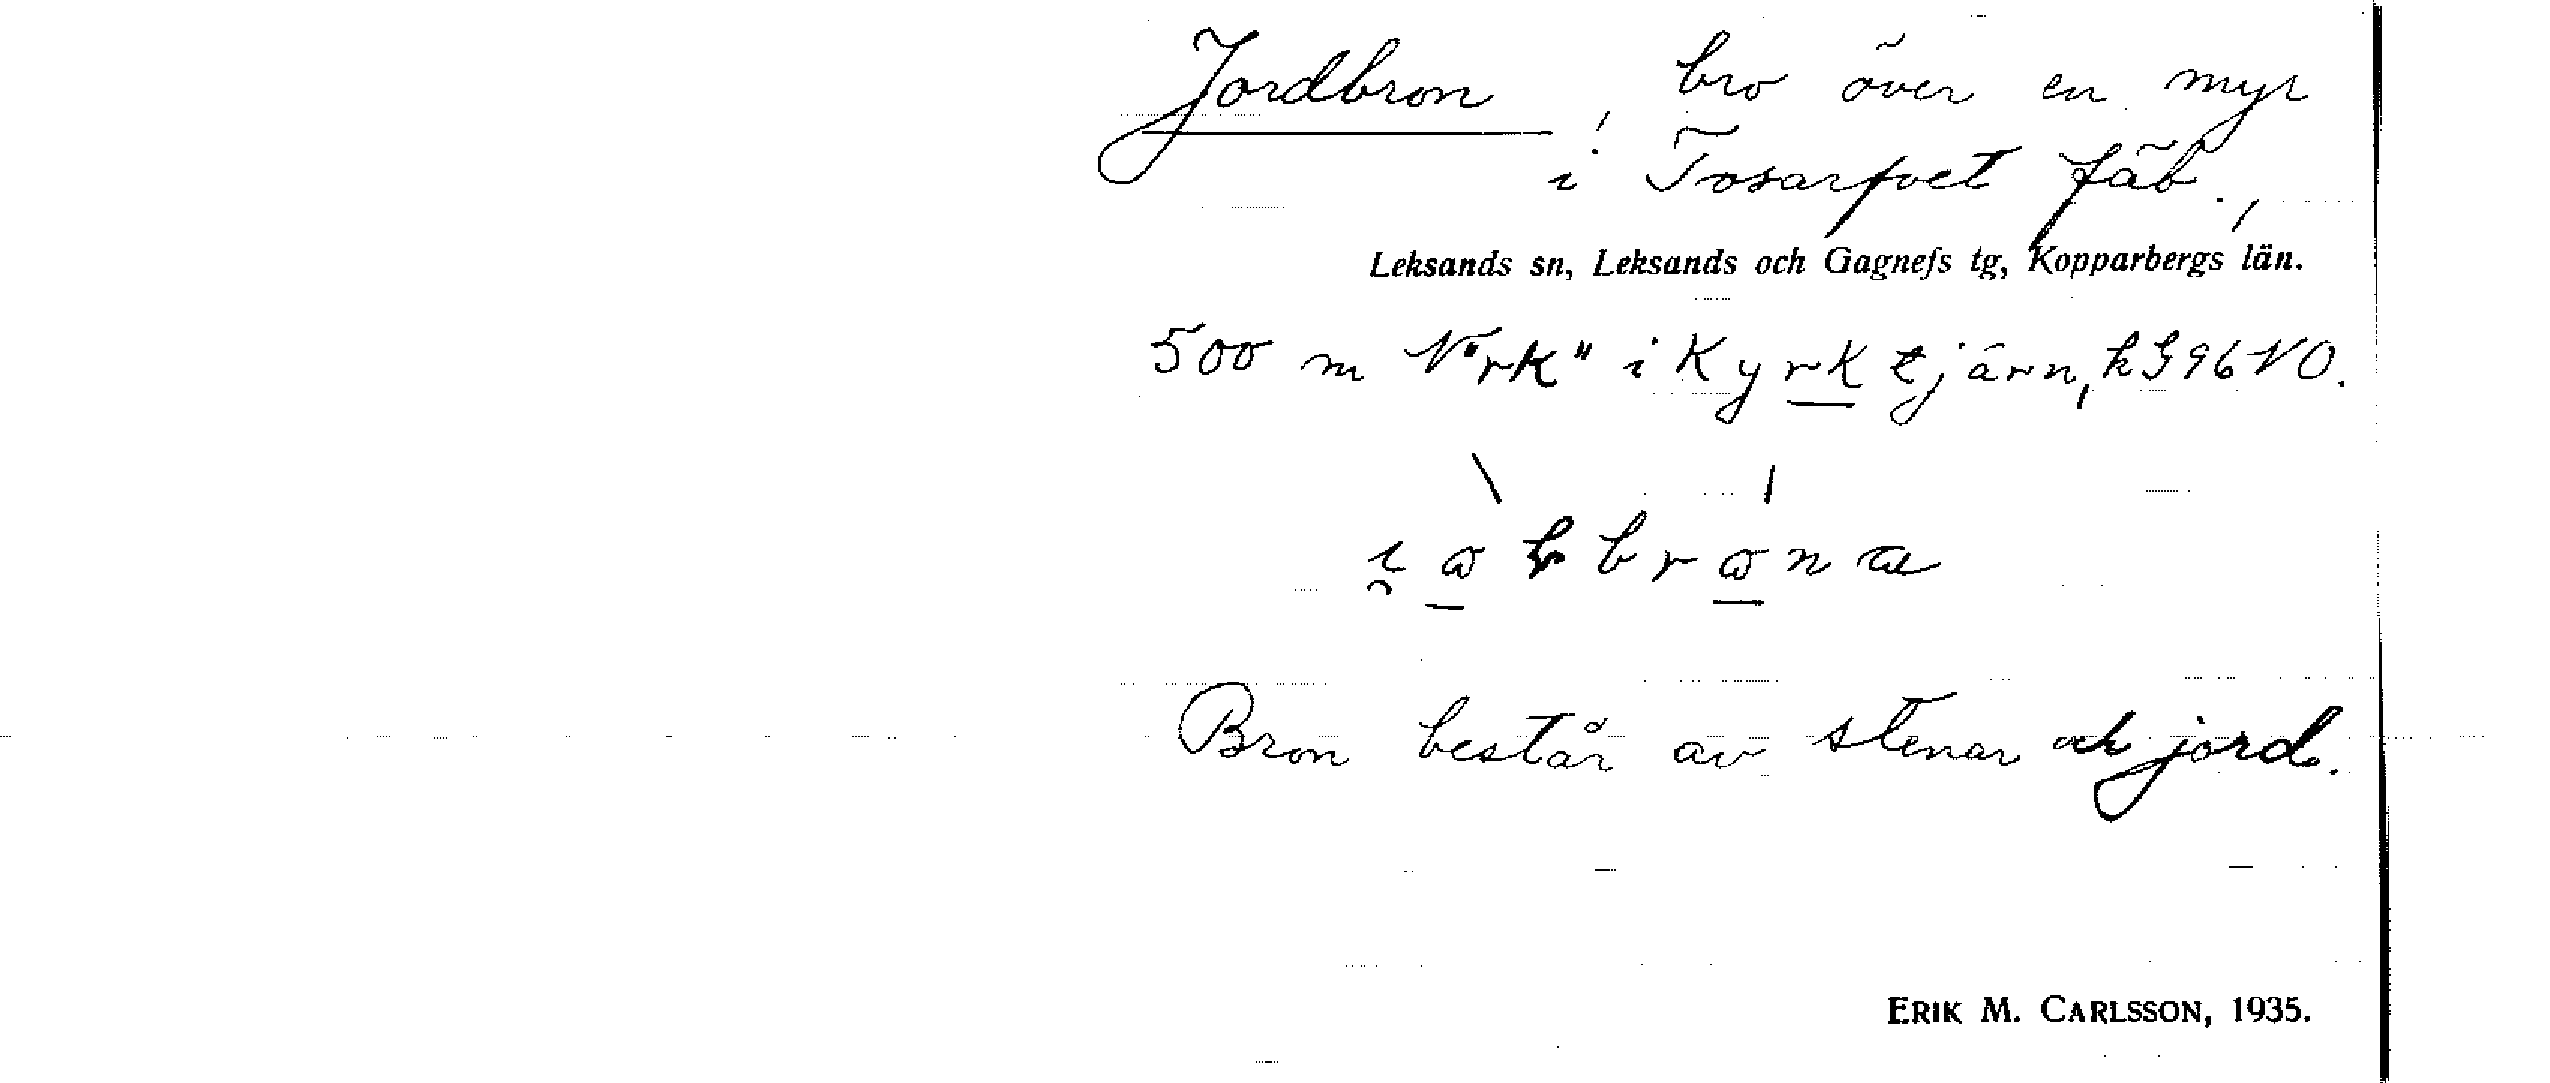 Jordbron, bro över en myr
i Tosarfvet fäb.,
Leksands sn, Leksands och Gagnefs tg, Kopparbergs län.
500 m N "rk" i Kyrktjärn, k 96 NO.
Bron består av stenar och jord.
ERIK M. CARLSSON, 1935.